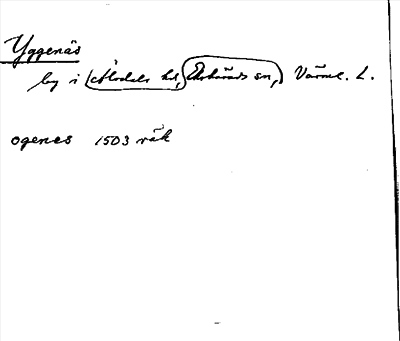 Yggenäs
by i Älvdals hd, Ekshärads sn, Värml. L.
ogenes 1503 räk